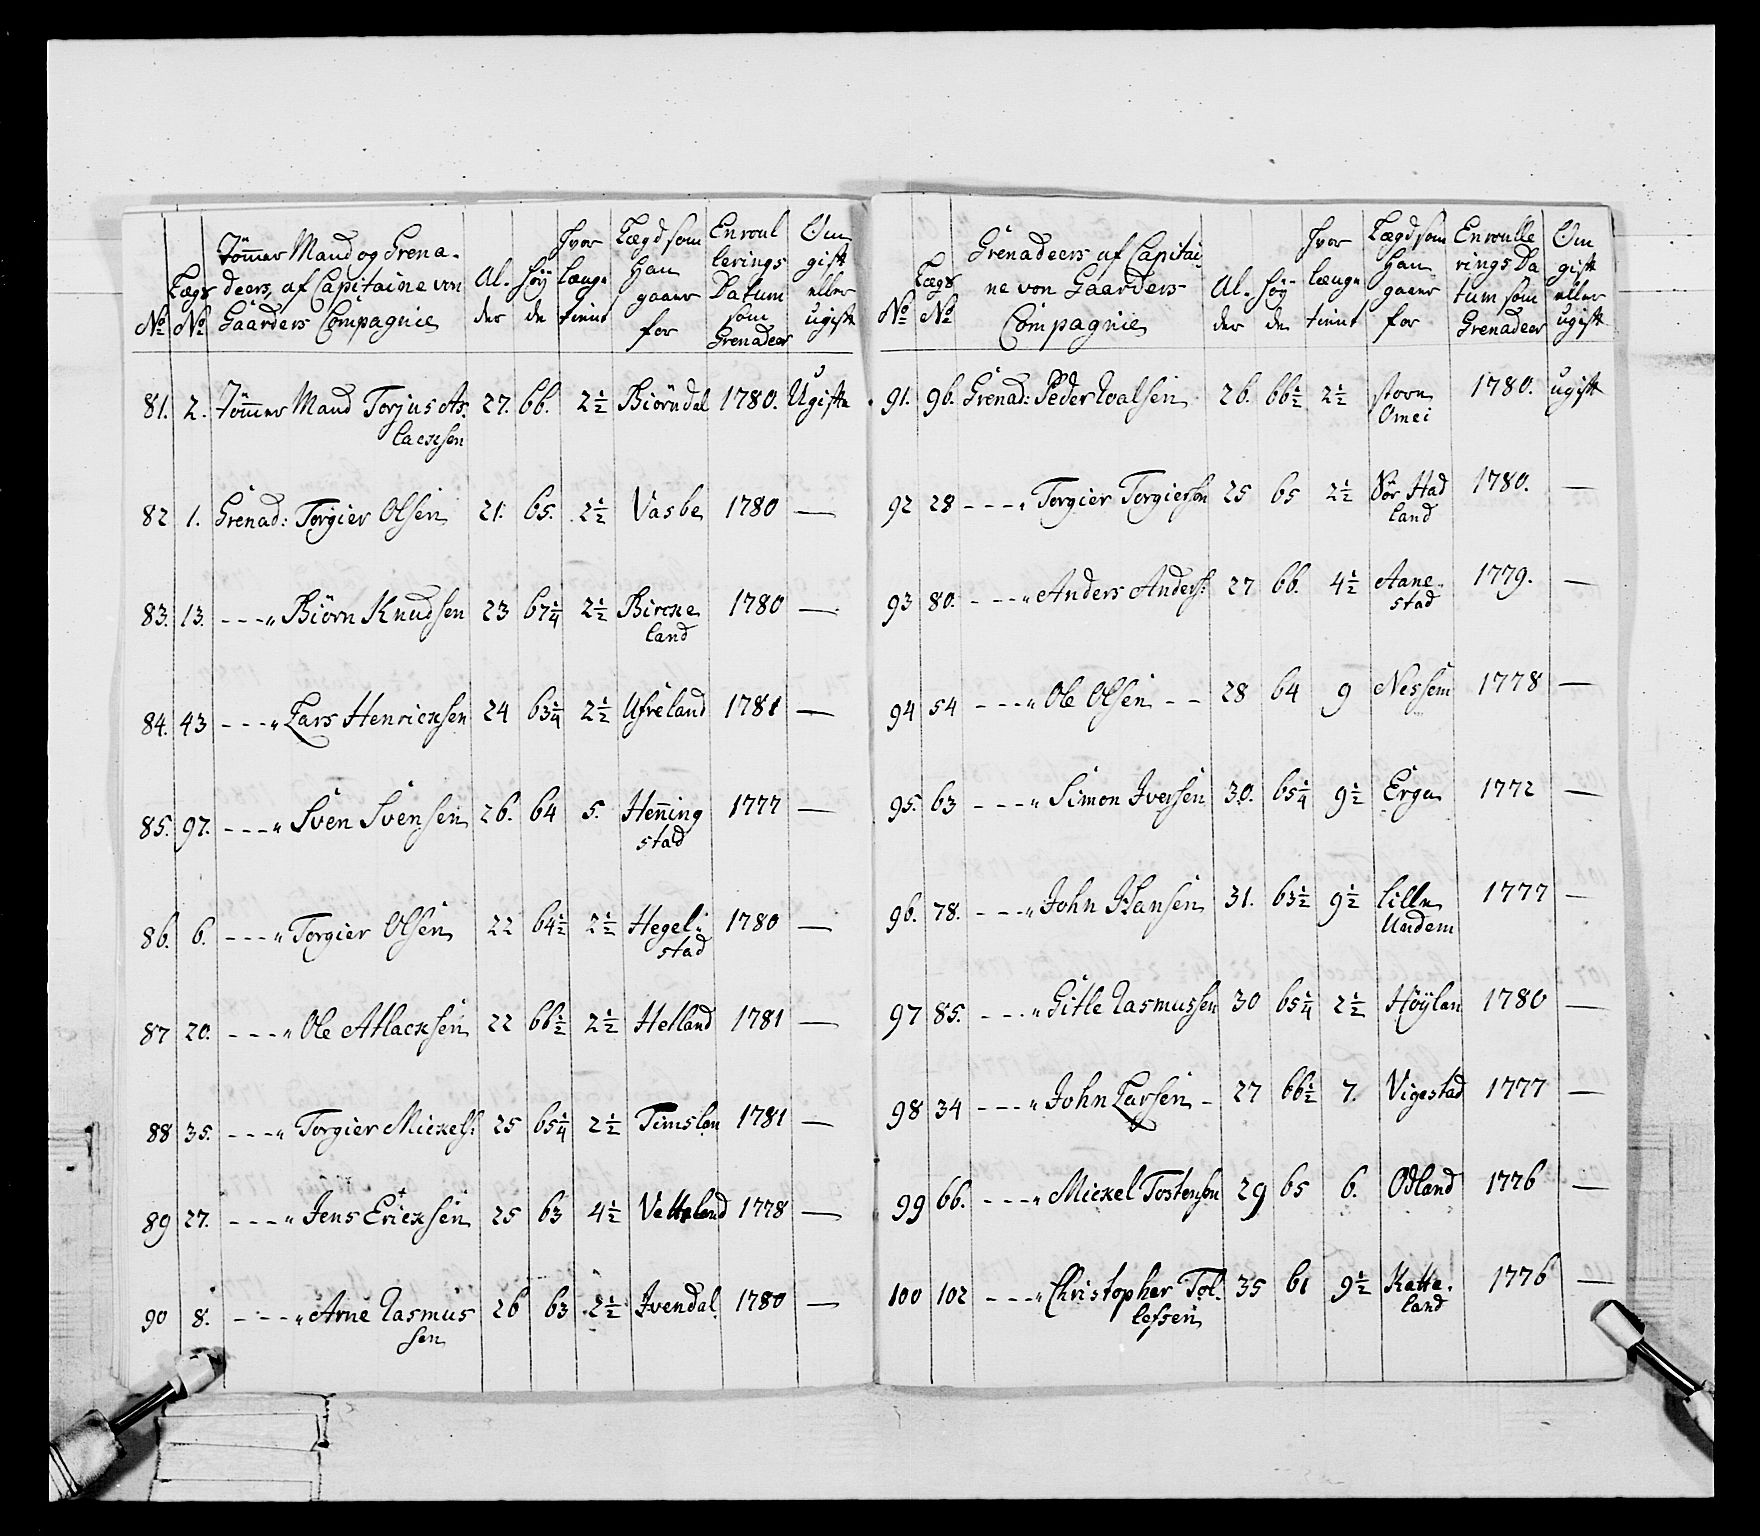 No
Lægs No
Tömer Mand og Grena-
deers, af Capitaine von
Gaarders Compagnie
Al-
der
Höy
de
Hvor
længe
tient
Lægd som
Han
gaaer
for
Enroul
lerings
Datum
som
Grenadeer
Om
gift
eller
ugift
81. 2. Tömer Mand Torjus As- 27. 66. 2½ Biörndal 1780. Ugift
lacksen
82 1. Grenad: Torgier Olsen 21. 65. 2½ Vasbe 1780 —
83. 13. - - - „ Biörn Knudsen 23 67¼ 2½ Bircke 1780 —
land
84. 43 - - - „ Lars Henricksen 24 63¼ 2½ Ufreland 1781 —
85. 97. - - - „ Sven Svensen 26. 64 5. Hening 1777 —
stad
86. 6. - - - „ Torgier Olsen 22 64½ 2½ Hegel: 1780 —
stad
87 20. - - - „ Ole Atlacksen 22 66½ 2½ Helland 1781 —
88 35. - - - „ Torgier Mickels: 25 65¼ 2½ Timslan 1781 —
89 27. - - - „ Jens Ericksen 25 63 4½ Vetteland 1778 —
90 8. - - - „ Arne Rasmus 26 63 2½ Ivendal 1780 —
sen
No
Lægs No
Grenadeers af Capitai-
ne von Gaarders
Compagnie
Al-
der
Höy
de
Hvor
længe
tient
Lægd som
Han
gaaer
for
Enroulle
rings Da
tum som
Grenadeer
Om
gift
eller
ugift
91. 96. Grenad: Peder Roalsen 26. 66½ 2½ store 1780. ugift
Omei
92 28 - - - „ Torgier Torgiersen 25 65 2½ Nör Had 1780. —
land
93 80. - - - „ Anders Anders: 27 66. 4½ Aane- 1779. —
stad
94 54 - - - „ Ole Olsen - - 28 64 9 Nessem 1778 —
95. 63 - - - „ Simon Iversen 30. 65¼ 9½ Erga 1772 —
96. 78. - - - „ John Hansen 31. 63½ 9½ lille 1777 —
Undem
97 85. - - - „ Gitle Rasmussen 30 65¼ 2½ Höÿlan 1780 —
98 34 - - - „ John Larsen - 27 66½ 7. Vigestad 1777 —
99 66. - - - „ Mickel Tostensen 29 65 6. Odland 1776 —
100 102 - - - „ Christopher Tol- 35 61 9½ Katte- 1776 —
lefsen land